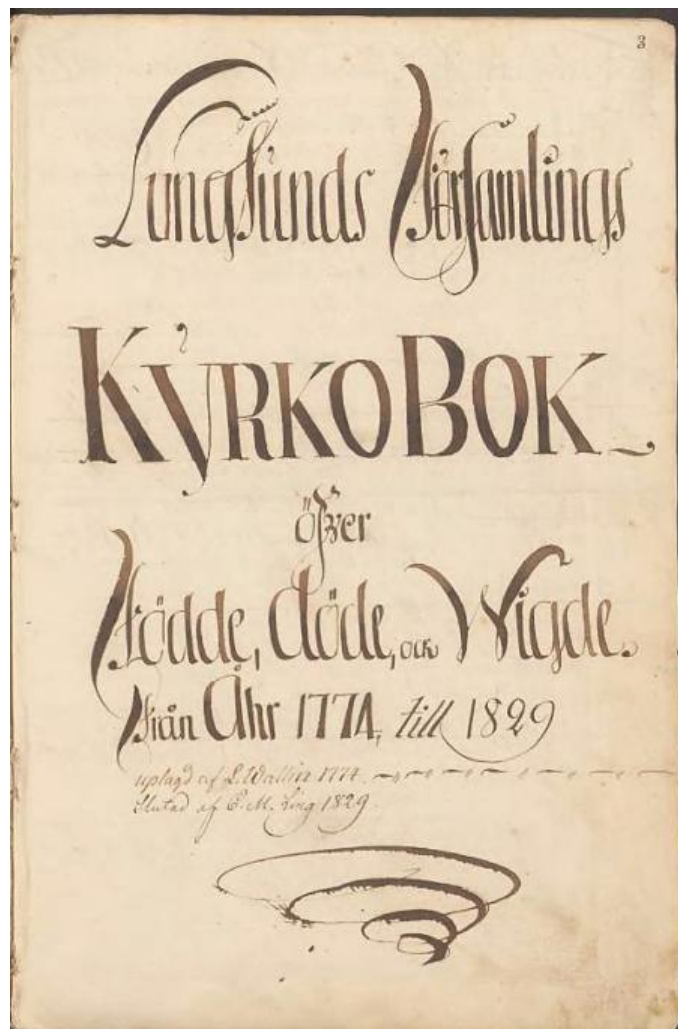 3
Lungsunds Församlings
KYRKO BOK
öfver
Födde, döde, och Wigde.
Från Åhr 1774, till 1829
uplagd af L. Wallin 1774.
Slutad af E. M. Ling 1829.